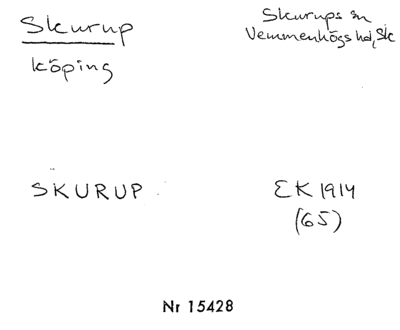 Skurup
köping
Skurups sn
Vemmenhögs hd, Sk
SKURUP
EK 1914
(65)
Nr 15428